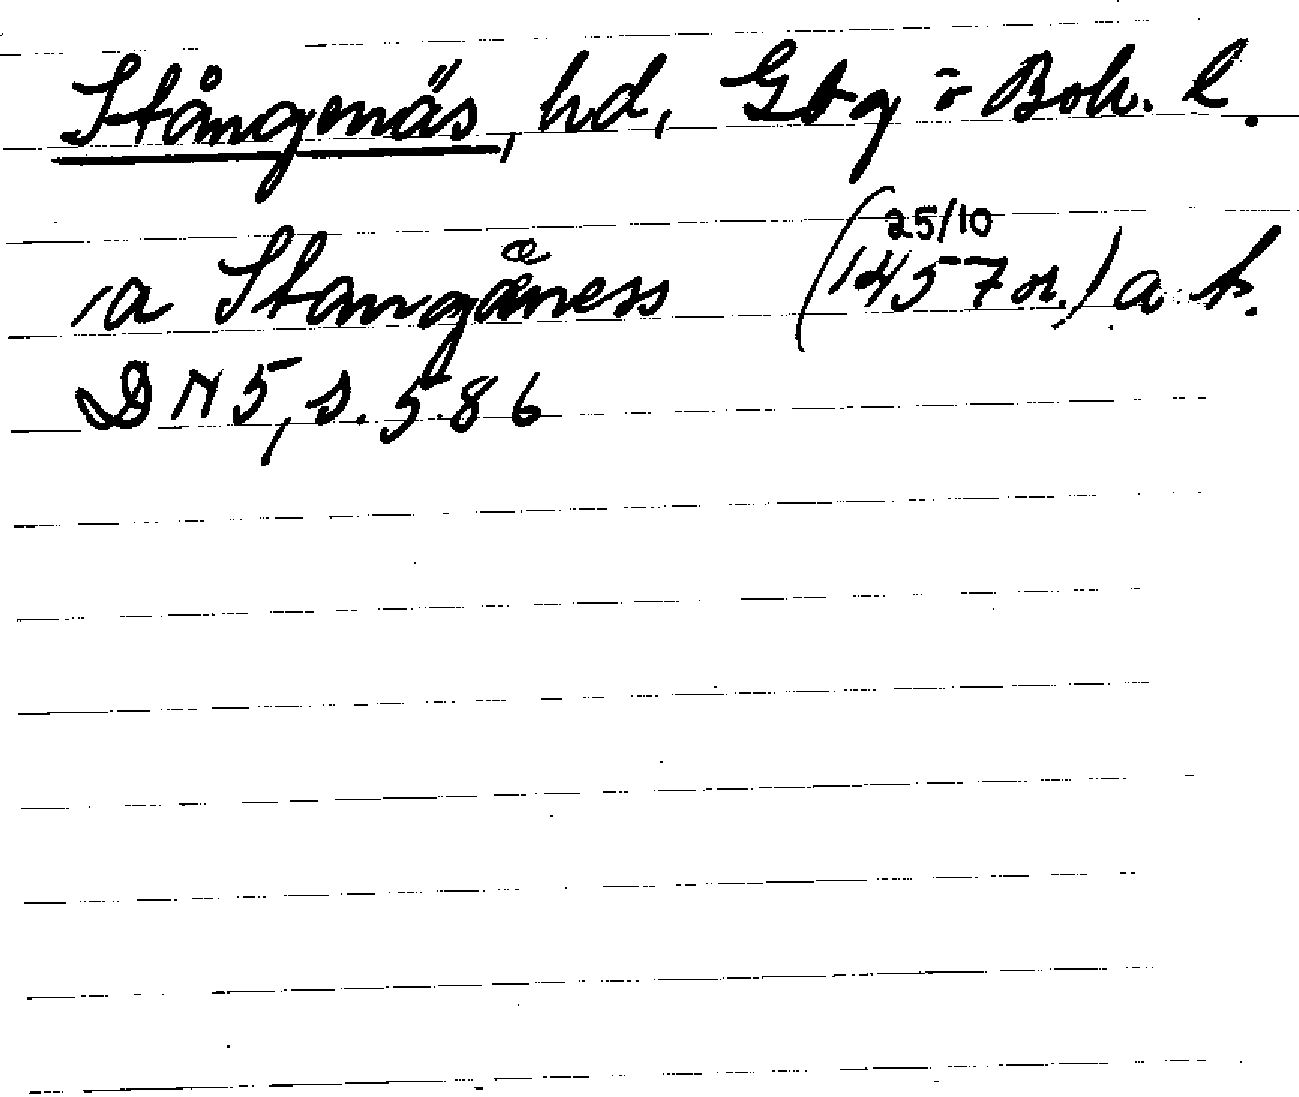 Stångenäs, hd, Gbg o Boh. l.
/a Stangæness (25/10 1457 or.) a. b.
DN 5, s. 586